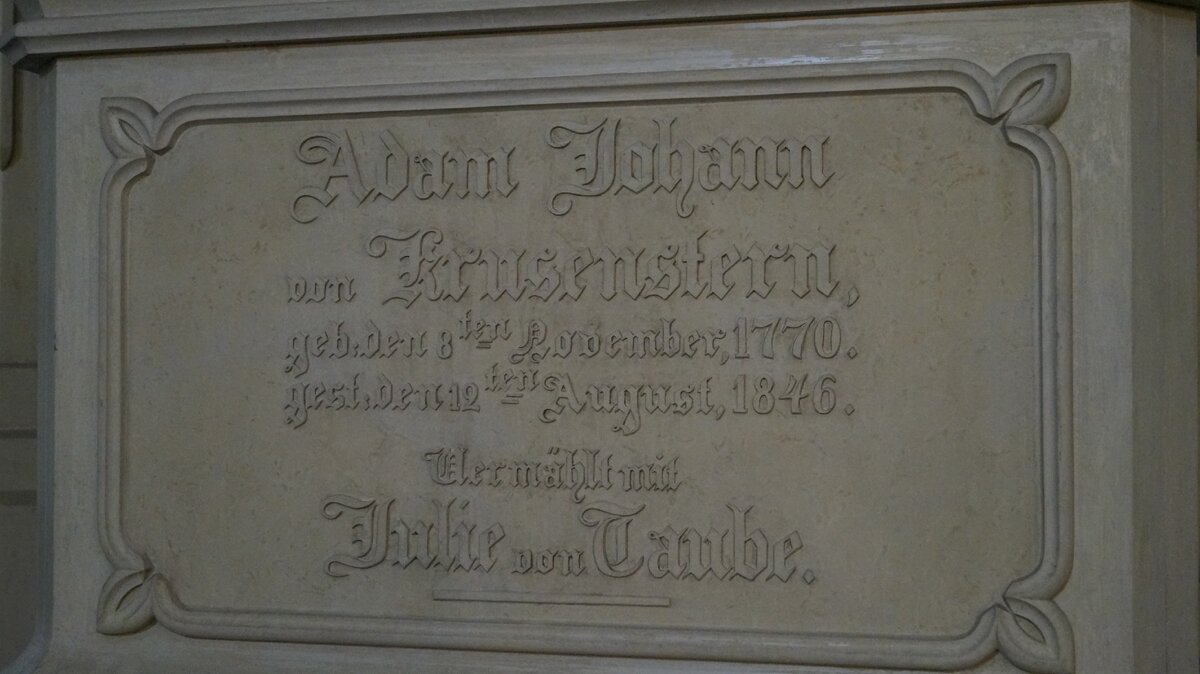 Adam Johann
von Krusenstern,
geb. den 8ten November, 1770.
gest. den 12ten August, 1846.
Vermählt mit
Julie von Taube.